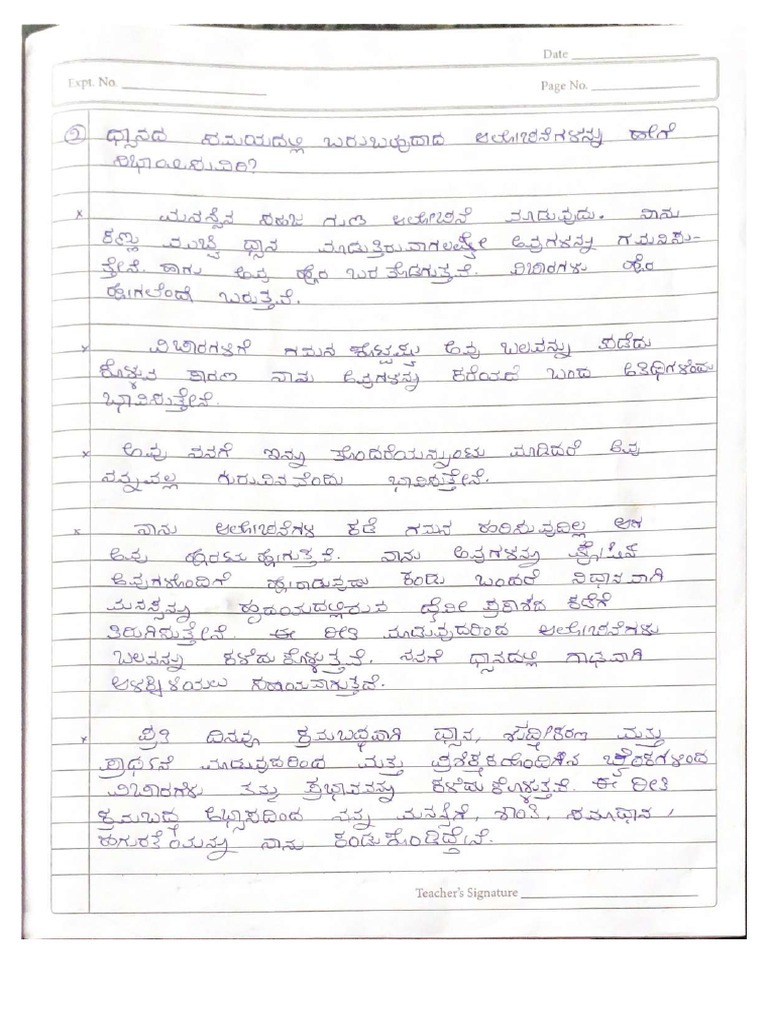 Date
Expt. No.
Page No.
೨ ಧ್ಯಾನದ ಸಮಯದಲ್ಲಿ ಬರುಬಹುದಾದ ಆಲೋಚನೆಗಳನ್ನು ಹೇಗೆ
ನಿಭಾಯಿಸುವಿರಿ?
x ಮನಸ್ಸಿನ ಸಹಜ ಗುಣ ಆಲೋಚನೆ ಮಾಡುವುದು. ನಾನು
ಕಣ್ಣು ಮುಚ್ಚಿ ಧ್ಯಾನ ಮಾಡುತ್ತಿರುವಾಗಲಷ್ಟೇ ಅವುಗಳನ್ನು ಗಮನಿಸು-
ತ್ತೇನೆ. ಹಾಗು ಅವು ಹೊರ ಬರ ತೊಡಗುತ್ತವೆ. ವಿಚಾರಗಳು ಹೊರ
ಹೋಗಲೆಂದೇ ಬರುತ್ತವೆ.
x ವಿಚಾರಗಳಿಗೆ ಗಮನ ಕೊಟ್ಟಷ್ಟು ಅವು ಬಲವನ್ನು ಪಡೆದು
ಕೊಳ್ಳುವ ಕಾರಣ ನಾನು ಅವುಗಳನ್ನು ಕರೆಯದೆ ಬಂದ ಅತಿಥಿಗಳೆಂದು
ಭಾವಿಸುತ್ತೇನೆ.
x ಅವು ನನಗೆ ಇನ್ನೂ ತೊಂದರೆಯನ್ನುಂಟು ಮಾಡಿದರೆ ಅವು
ನನ್ನವಲ್ಲ ಗುರುವಿನವೆಂದು ಭಾವಿಸುತ್ತೇನೆ.
x ನಾನು ಆಲೋಚನೆಗಳ ಕಡೆ ಗಮನ ಹರಿಸುವುದಿಲ್ಲ ಆಗ
ಅವು ಹೊರಟು ಹೋಗುತ್ತವೆ. ನಾನು ಅವುಗಳನ್ನು
ಅವುಗಳೊಂದಿಗೆ ಹೋರಾಡುವುದು ಕಂಡು ಬಂದರೆ ನಿಧಾನವಾಗಿ
ಮನಸ್ಸನ್ನು ಹೃದಯದಲ್ಲಿರುವ ದೈವೀ ಪ್ರಕಾಶದ ಕಡೆಗೆ
ತಿರುಗಿಸುತ್ತೇನೆ. ಈ ರೀತಿ ಮಾಡುವುದರಿಂದ ಆಲೋಚನೆಗಳು
ಬಲವನ್ನು ಕಳೆದುಕೊಳ್ಳುತ್ತವೆ. ನನಗೆ ಧ್ಯಾನದಲ್ಲಿ ಗಾಢವಾಗಿ
ಆಳಕ್ಕಿಳಿಯಲು ಸಹಾಯವಾಗುತ್ತದೆ.
x ಪ್ರತಿ ದಿನವೂ ಕ್ರಮಬದ್ಧವಾಗಿ ಧ್ಯಾನ, ಶುದ್ಧೀಕರಣ ಮತ್ತು
ಪ್ರಾರ್ಥನೆ ಮಾಡುವುದರಿಂದ ಮತ್ತು ಪ್ರಶಿಕ್ಷಕರೊಂದಿಗಿನ ಬೈಠಕಗಳಿಂದ
ವಿಚಾರಗಳು ತಮ್ಮ ಪ್ರಭಾವವನ್ನು ಕಳೆದುಕೊಳ್ಳುತ್ತವೆ. ಈ ರೀತಿ
ಕ್ರಮಬದ್ಧ ಅಭ್ಯಾಸದಿಂದ ನನ್ನ ಮನಸ್ಸಿಗೆ, ಶಾಂತಿ, ಸಮಾಧಾನ,
ಹಗುರತೆಯನ್ನು ನಾನು ಕಂಡುಕೊಂಡಿದ್ದೇನೆ.
Teacher's Signature